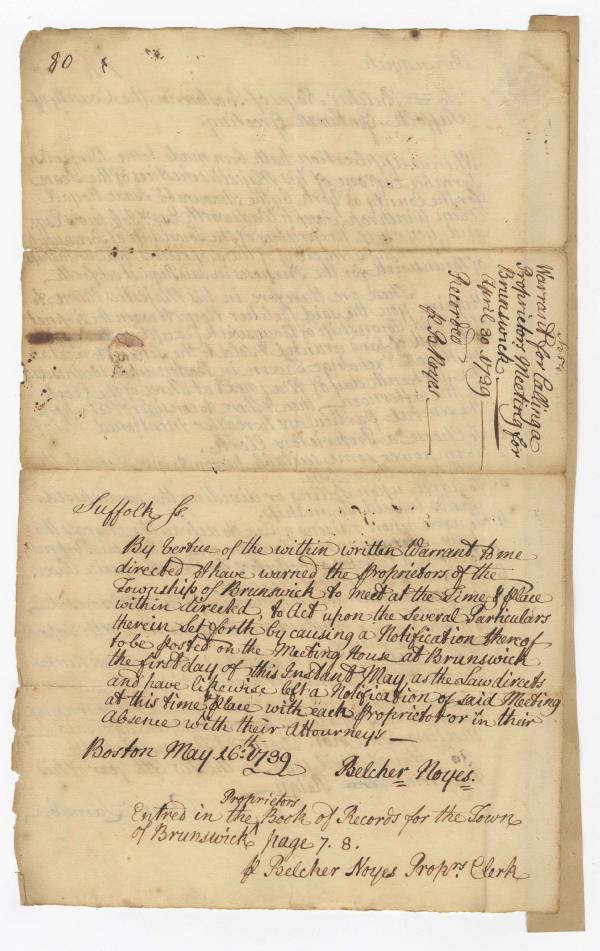 80
No 54
Warrant for Calling a
Proprietors Meeting for
Brunswick
April 30. 1739
Recorded
p B Noyes
Suffolk Ss
By Vertue of the within written Warrant to me
directed I have warned the Proprietors of the
Township of Brunswick to meet at the Time & place
within directed, to Act upon the Several Particulars
therein Set forth by causing a Notification thereof
to be posted on the Meeting House at Brunswick
the first day of this Instant May, as the Law directs
and have likewise left a Notification of said Meeting
at this time & place with each Proprietor or in their
Absence with their Attourneys —
Boston May 16th 1739
Belcher Noyes.
Entred in the Proprietors Book of Records for the Town
of Brunswick page 7. 8.
p Belcher Noyes Proprs Clerk